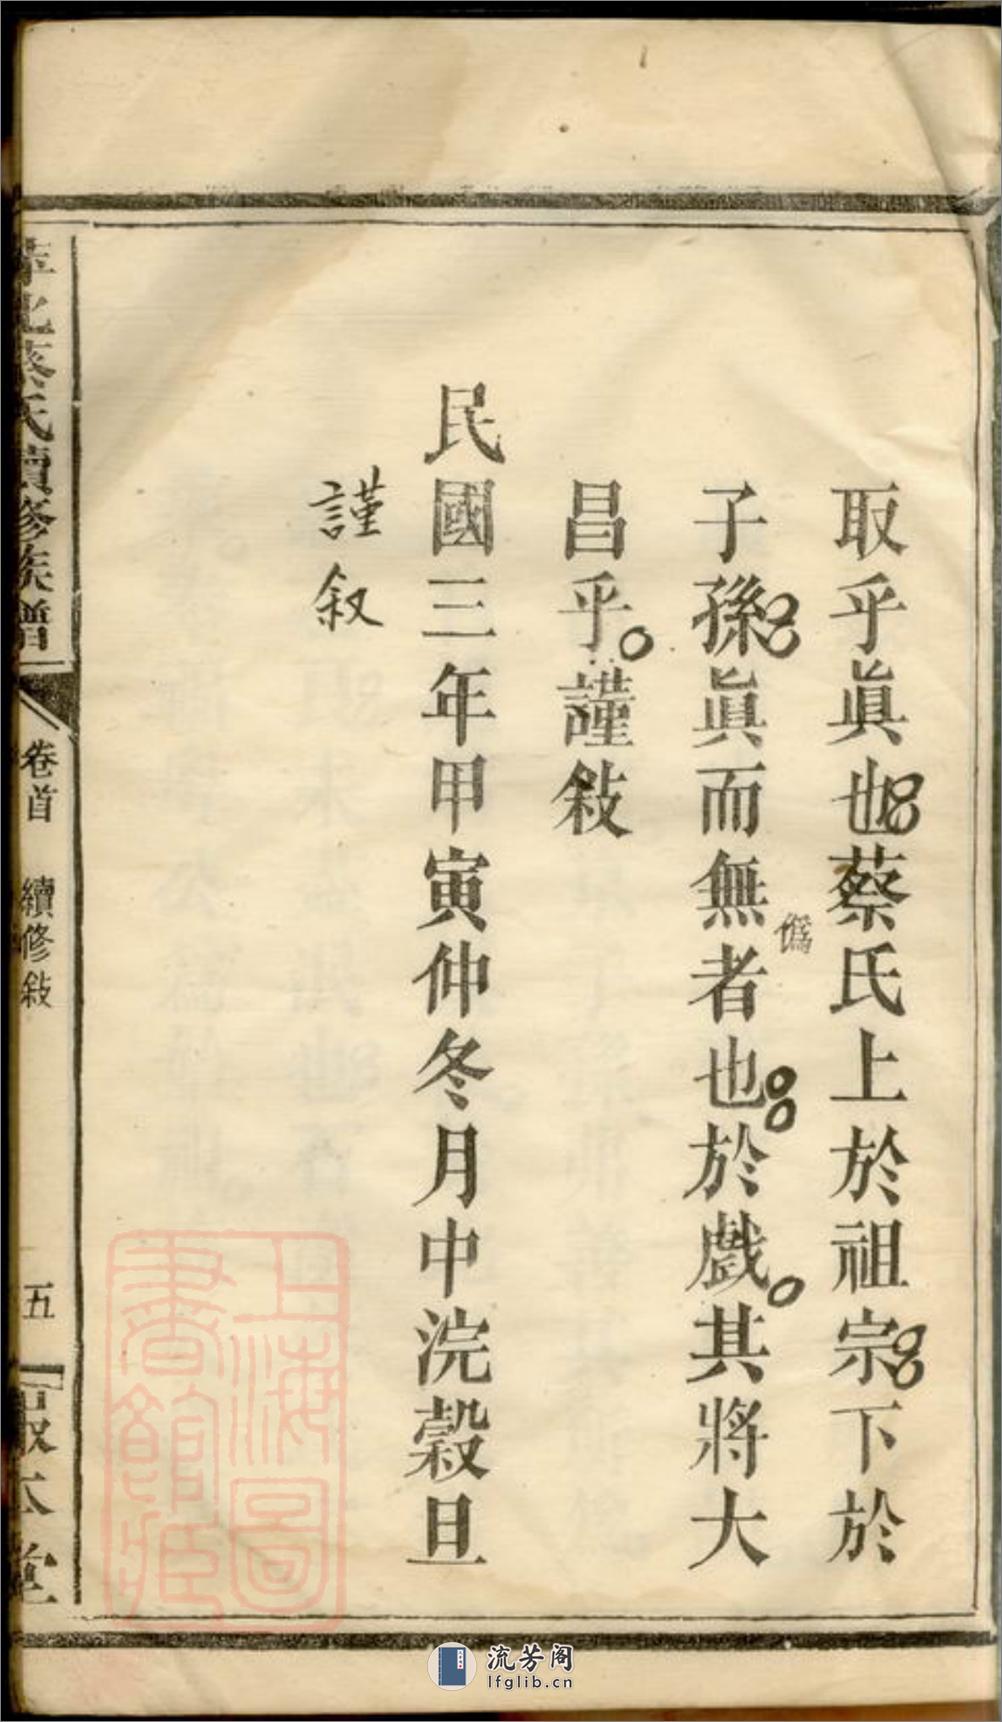 取乎眞也蔡氏上於祖宗下於
子孫眞而無者也於戲其將大
僞
昌乎謹敍
民國三年甲寅仲冬月中浣穀旦
謹叙
萍北蔡氏續修族譜
卷首 續修敍
五
敬本堂
上海圖
書館藏
流芳阁
lfglib.cn